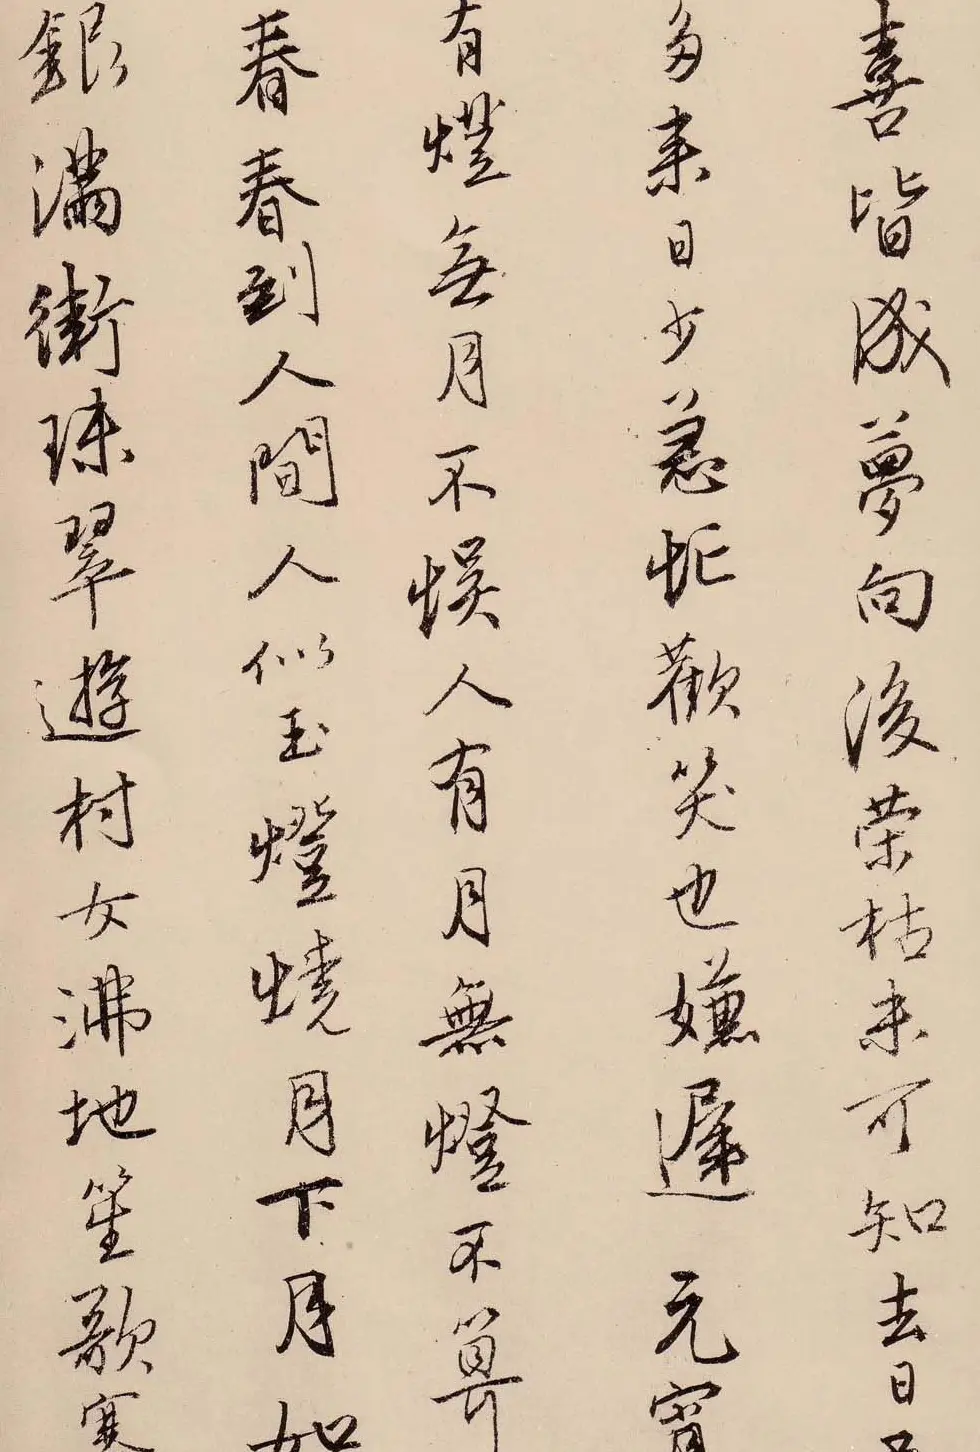 喜皆成夢向後荣枯未可知去日
多来日少急忙歡笑也嫌遲 元宵
有燈無月不悮人有月無燈不算
春春到人間人似玉燈燒月下月如
銀滿街珠翠遊村女沸地笙歌賽